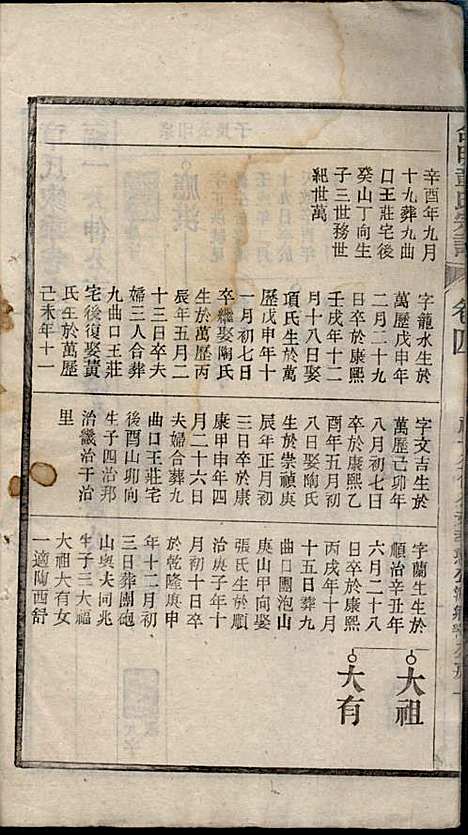 辛酉年九月
十九葬九曲
口王莊宅後
癸山丁向生
子三世務世
紀世萬
字龍水生於
萬歷戊申年
二月二十九
日卒於康熙
壬戌年十二
月十八日娶
項氏生於萬
歷戊申年十
一月初七日
卒繼娶陶氏
生於萬歷丙
辰年五月二
十三日卒夫
婦三人合葬
九曲口王莊
宅後復娶黃
氏生於萬歷
己未年十一
字文吉生於
萬歷己卯年
八月初七日
卒於康熙乙
酉年五月初
八日娶陶氏
生於崇禎庚
辰年正月初
三日卒於康
康甲申年四
月二十六日
夫婦合葬九
曲口王莊宅
後酉山卯向
生子四治邦
治畿治干治
里
字蘭生生於
順治辛丑年
六月二十八
日卒於康熙
丙戌年十月
十五日葬九
曲口團泡山
庚山甲向娶
張氏生於順
治庚子年十
月初十日卒
於乾隆庚申
年十二月初
三日葬團砲
山與夫同兆
生子三大福
大祖大有女
一適陶西舒
大祖
大有
卷四